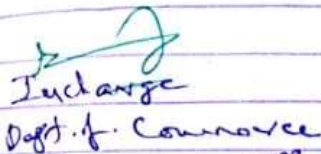 Incharge
Dept. of. Commerce